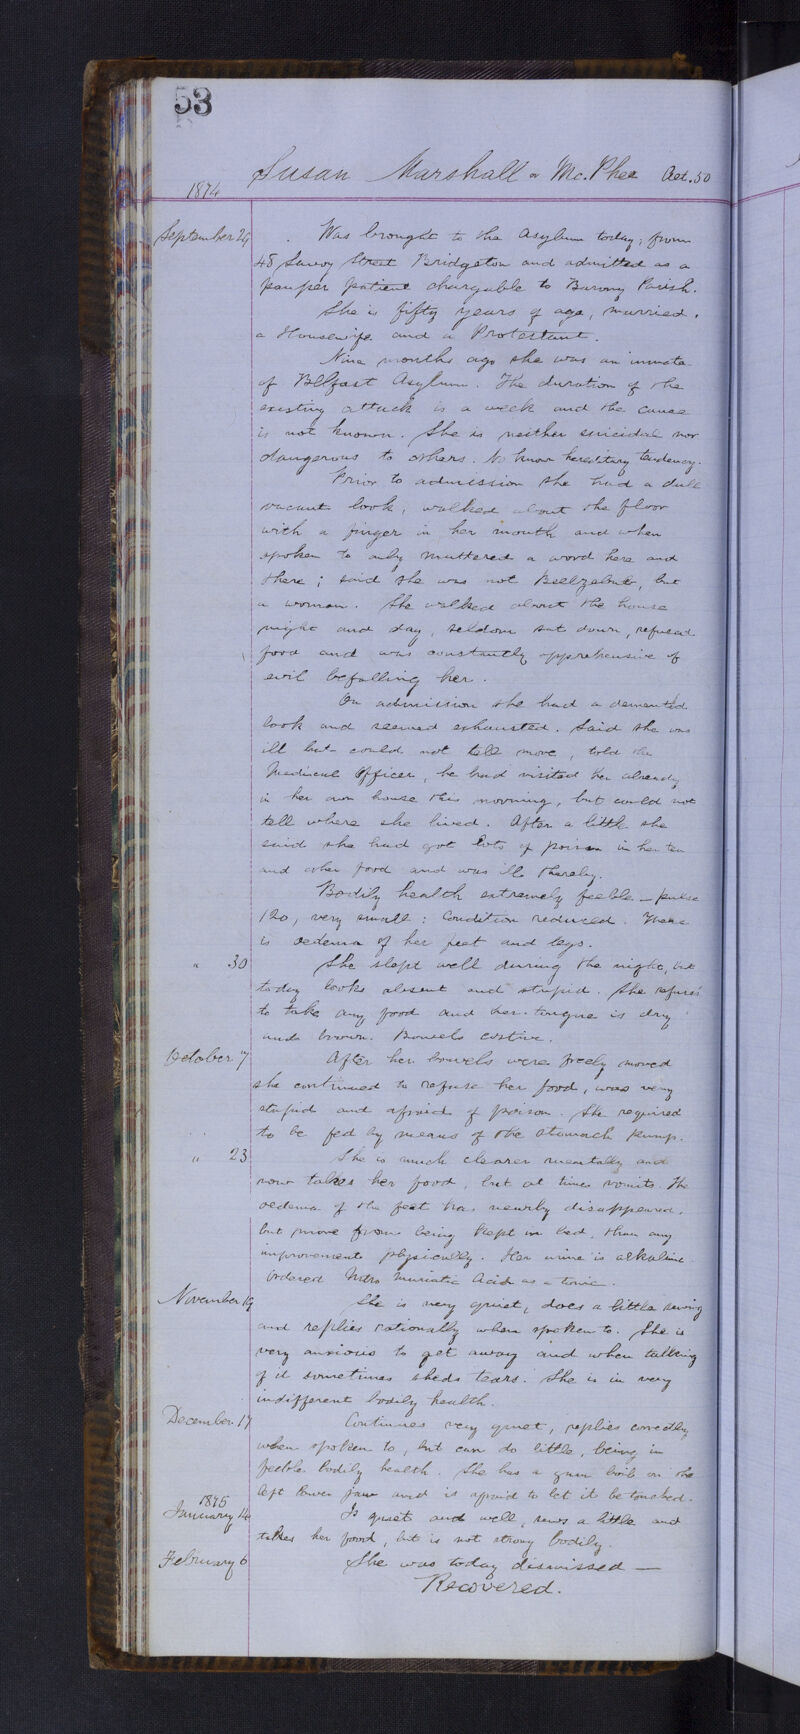 53
Susan Marshall or Mc.Phee Aet. 50
1874
September 29 Was brought to the Asylum today, from
48 Savoy Street Bridgeton and admitted as a
pauper patient chargable to Barony Parish.
She is fifty years of age, married,
a Housewife and a Protestant.
Nine months ago she was an inmate
of Belfast Asylum. The duration of the
existing attack is a week and the cause
is not known. She is neither suicidal nor
dangerous to others. No known hereditary tendency.
Prior to admission she had a dull
vacant look, walked about the floor
with a finger in her mouth and when
spoken to only muttered a word here and
there; said she was not Beelzebub, but
a woman. She walked about the house
night and day, seldom sat down, refused
food and was constantly apprehensive of
evil befalling her.
On admission she had a demented
look and seemed exhausted. Said she was
ill but could not tell more, told the
Medical Officer, he had visited her already
in her own house this morning, but could not
tell where she lived. After a little she
said she had got lots of poison in her tea
and other food and was ill thereby.
Bodily health extremely feeble — pulse
120, very small: Condition reduced. There
is oedema of her feet and legs.
" 30 She slept well during the night, but
today looks absent and stupid. She refuses
to take any food and her tongue is dry
and brown. Bowels costive.
October 7 After her bowels were freely moved
she continued to refuse her food, was very
stupid and afraid of poison. She required
to be fed by means of the stomach pump.
" 23 She is much clearer mentally and
now takes her food, but at times vomits. The
oedema of the feet has nearly disappeared,
but more from being kept in bed, than any
improvement physically. Her urine is alkaline.
Ordered Nitro Muriatic Acid as a tonic.
November 19 She is very quiet, does a little sewing
and replies rationally when spoken to. She is
very anxious to get away and when talking
of it sometimes sheds tears. She is in very
indifferent bodily health.
December 17 Continues very quiet, replies correctly
when spoken to, but can do little, being in
feeble bodily health. She has a gum boil on the
left lower jaw and is afraid to let it be touched.
1875
January 14 Is quiet and well, sews a little and
takes her food, but is not strong bodily.
February 6 She was today dismissed —
Recovered.